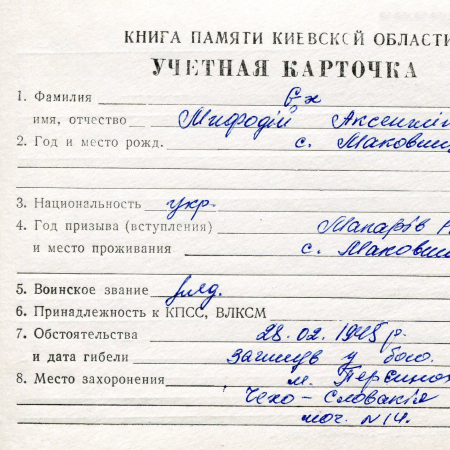 КНИГА ПАМЯТИ КИЕВСКОЙ ОБЛАСТИ
УЧЕТНАЯ КАРТОЧКА
1. Фамилия Сух
имя, отчество Мифодій Аксенті
2. Год и место рожд. с. Маковищ
3. Национальность укр.
4. Год призыва (вступления) Макарів
и место проживания с. Маковищ
5. Воинское звание ряд.
6. Принадлежность к КПСС, ВЛКСМ
7. Обстоятельства 28.02.1945 р.
и дата гибели Загинув у бою.
8. Место захоронения м.
Чехо-Словакія
мог. N 14.